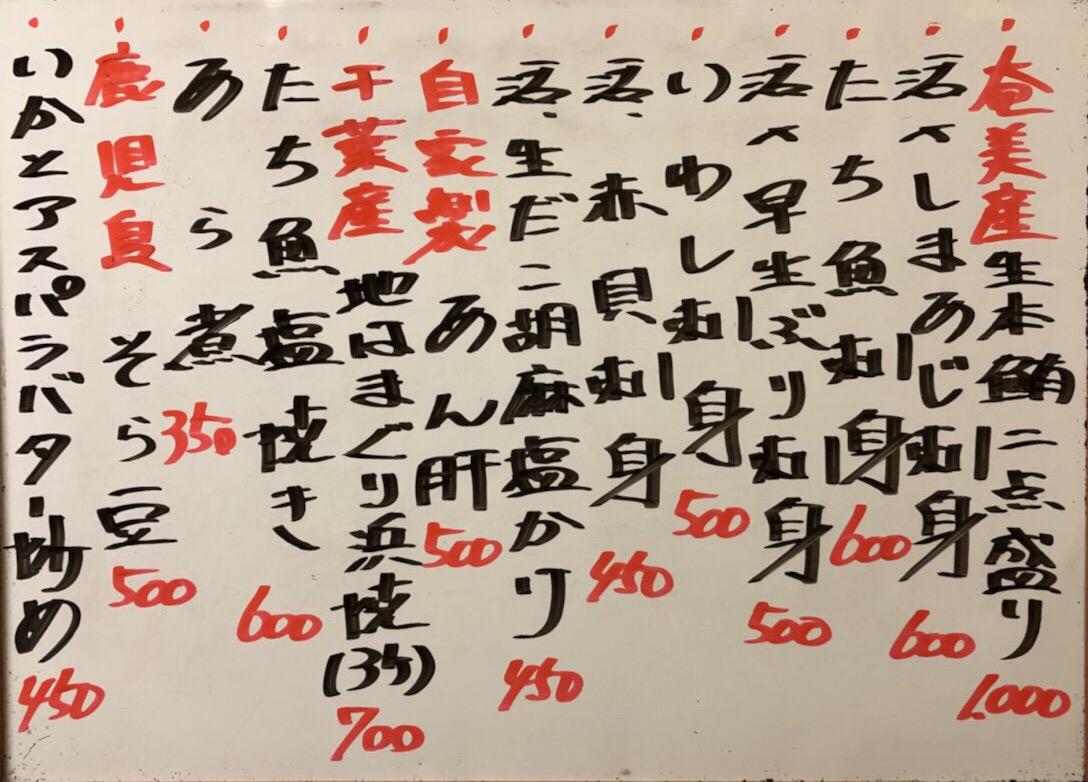 奄美産生本鮪二点盛り 1.000
活〆しまあじ刺身 600
たち魚刺身 600
活〆早生ぶり刺身 500
いわし刺身 500
活、赤貝刺身 450
活、生だこ胡麻塩かり 450
自家製あん肝 500
千葉産地はまぐり浜焼(3ケ) 700
たち魚塩焼き 600
あら煮 350
鹿児島そら豆 500
いかとアスパラバター炒め 450